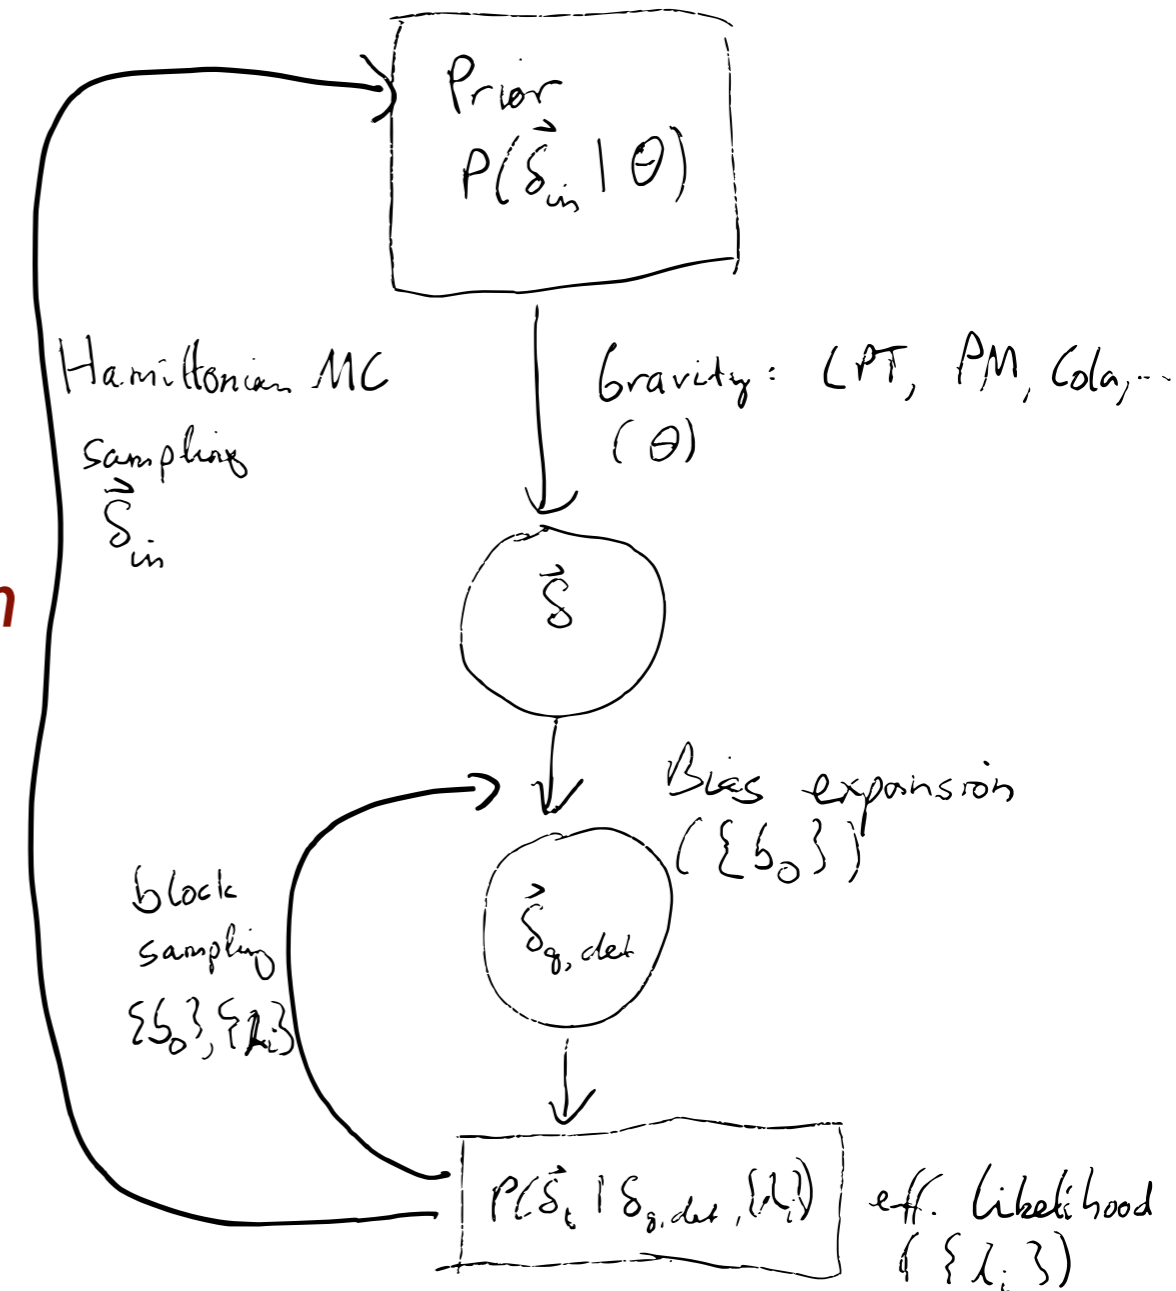 Prior
P(δ⃗_in | θ)
Hamiltonian MC
sampling
δ⃗_in
Gravity: LPT, PM, Cola,...
(θ)
n
δ⃗
Bias expansion
({b_O})
block
sampling
{b_O}, {λ_i}
δ⃗_g,det
P(δ⃗_t | δ_g,det, {λ_i})
eff. likelihood
({λ_i})